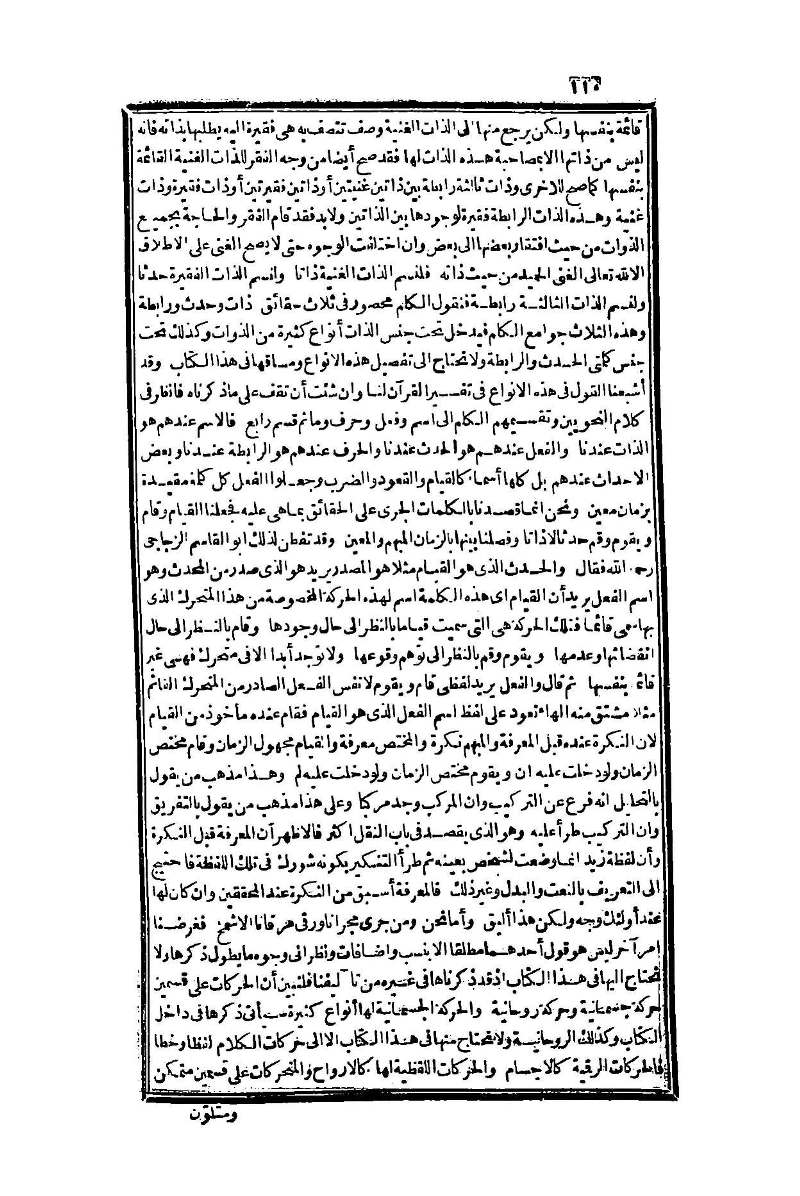 قائمة بنفسها ولكن يرجع منها الى الذات الغنية وصف تتصف به هى فقيرة اليه يطلبها بذاته فانه
ليس من ذاتها الا بمصاحبة هذه الذات لها فقد صح أيضا من وجه الفقر للذات الغنية القائمة
بنفسها كما صح للاخرى وذات ثالثة رابطة بين ذاتين غنيتين أو ذاتين فقيرتين أو ذات فقيرة وذات
غنية وهذه الذات الرابطة فقيرة لوجود هابين الذاتين ولابد فقد قام الفقر والحاجة بجميع
الذوات من حيث افتقار بعضها الى بعض وان اختلفت الوجوه حتى لا يصح الغنى على الاطلاق
الا لله تعالى الغنى الحميد من حيث ذاته فلنسم الذات الغنية ذاتا ولنسم الذات الفقيرة حدثا
ولنسم الذات الثالثة رابطة فنقول الكلم محصور فى ثلاث حقائق ذات وحدث ورابطة
وهذه الثلاث جوامع الكلم فيدخل تحت جنس الذات أنواع كثيرة من الذوات وكذلك تحت
جنس كلمتى الحدث والرابطة ولا نحتاج الى تفصيل هذه الانواع ومساقها فى هذا الكتاب وقد
أشبعنا القول فى هذه الانواع فى تفسير القرآن لنا وان شئت أن تقف على ماذكرناه فانظر فى
كلام النحويين وتقسيمهم الكلم الى اسم وفعل وحرف وما ثم قسم رابع فالاسم عندهم هو
الذات عندنا والفعل عندهم هو الحدث عندنا والحرف عندهم هو الرابطة عندنا وبعض
الاحداث عندهم بل كلها أسماء كالقيام والقعود والضرب وجعلوا الفعل كل كلمة مقيدة
بزمان معين ونحن انما قصدنا بالكلمات الجرى على الحقائق بما هى عليه فجعلنا القيام وقام
ويقوم وقم حدثا لا ذاتا وفصلنا بينها بالزمان المبهم والمعين وقد تفطن لذلك ابو القاسم الزجاجى
رحمه الله فقال والحدث الذى هو القيام مثلا هو المصدر يريد هو الذى صدر من المحدث وهو
اسم الفعل يريد أن القيام اى هذه الكلمة اسم لهذه الحركة المخصوصة من هذا المتحرك الذى
بها سمى قائما فتلك الحركة هى التى سميت قياما بالنظر الى حال وجودها وقام بالنظر الى حال
انقضائها وعدمها ويقوم وقم بالنظر الى توهم وقوعها ولا توجد أبدا الا فى متحرك فهى غير
قائمة بنفسها ثم قال والفعل يريد لفظى قام ويقوم لا نفس الفعل الصادر من المتحرك القائم
مثلا مشتق منه الهاء تعود على لفظ اسم الفعل الذى هو القيام فقام عنده مأخوذ من القيام
لان النكرة عنده قبل المعرفة والمبهم نكرة والمختص معرفة والقيام مجهول الزمان وقام مختص
الزمان ولو دخلت عليه ان ويقوم مختص الزمان ولو دخلت عليه لم وهذا مذهب من يقول
بالتحليل انه فرع عن التركيب وان المركب وجد مركبا وعلى هذا مذهب من يقول بالتفريق
وان التركيب طرأ عليه وهو الذى يقصد فى باب النقل اكثر فالاظهر أن المعرفة قبل النكرة
وأن لفظة زيد انما وضعت لشخص بعينه ثم طرأ التنكير بكونه شورك فى تلك اللفظة فاحتيج
الى التعريف بالنعت والبدل وغير ذلك فالمعرفة أسبق من النكرة عند المحققين وان كان لها
عند أولئك وجه ولكن هذا أليق وأما نحن ومن جرى مجرانا ورقى مرقانا الاشمخ فغرضنا
أمر آخر ليس هو قول أحدهما مطلقا الا بنسب واضافات ونظر الى وجوه ما يطول ذكرها ولا
نحتاج اليها فى هذا الكتاب اذ قد ذكرناها فى غيره من تآليفنا فلنبين أن الحركات على قسمين
حركة جسمانية وحركة روحانية والحركة الجسمانية لها أنواع كثيرة سيأتى ذكرها فى داخل
الكتاب وكذلك الروحانية ولا نحتاج منها فى هذا الكتاب الا الى حركات الكلام لفظا وخطا
فالحركات الرقمية كالاجسام والحركات اللفظية لها كالارواح والمتحركات على قسمين متمكن
ومتلون